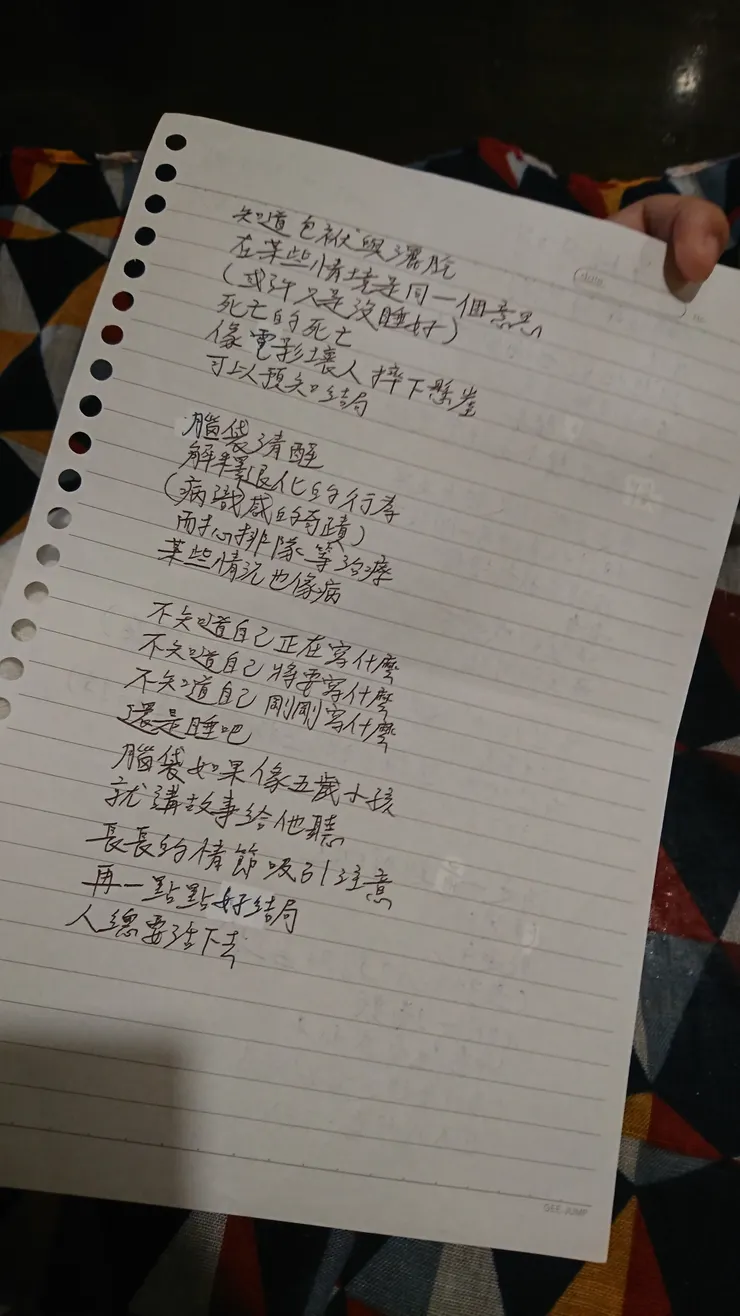 知道包袱與灑脫
在某些情境是同一個意思
(或許只是沒睡好)
死亡的死亡
像電影壞人摔下懸崖
可以預知結局
腦袋清醒
解釋退化的行為
(病識感的奇蹟)
耐心排隊等治療
某些情況也像病
不知道自己正在寫什麼
不知道自己將要寫什麼
不知道自己剛剛寫什麼
還是睡吧
腦袋如果像五歲小孩
就講故事給他聽
長長的情節吸引注意
再一點點好結局
人總要活下去
GEE JUMP